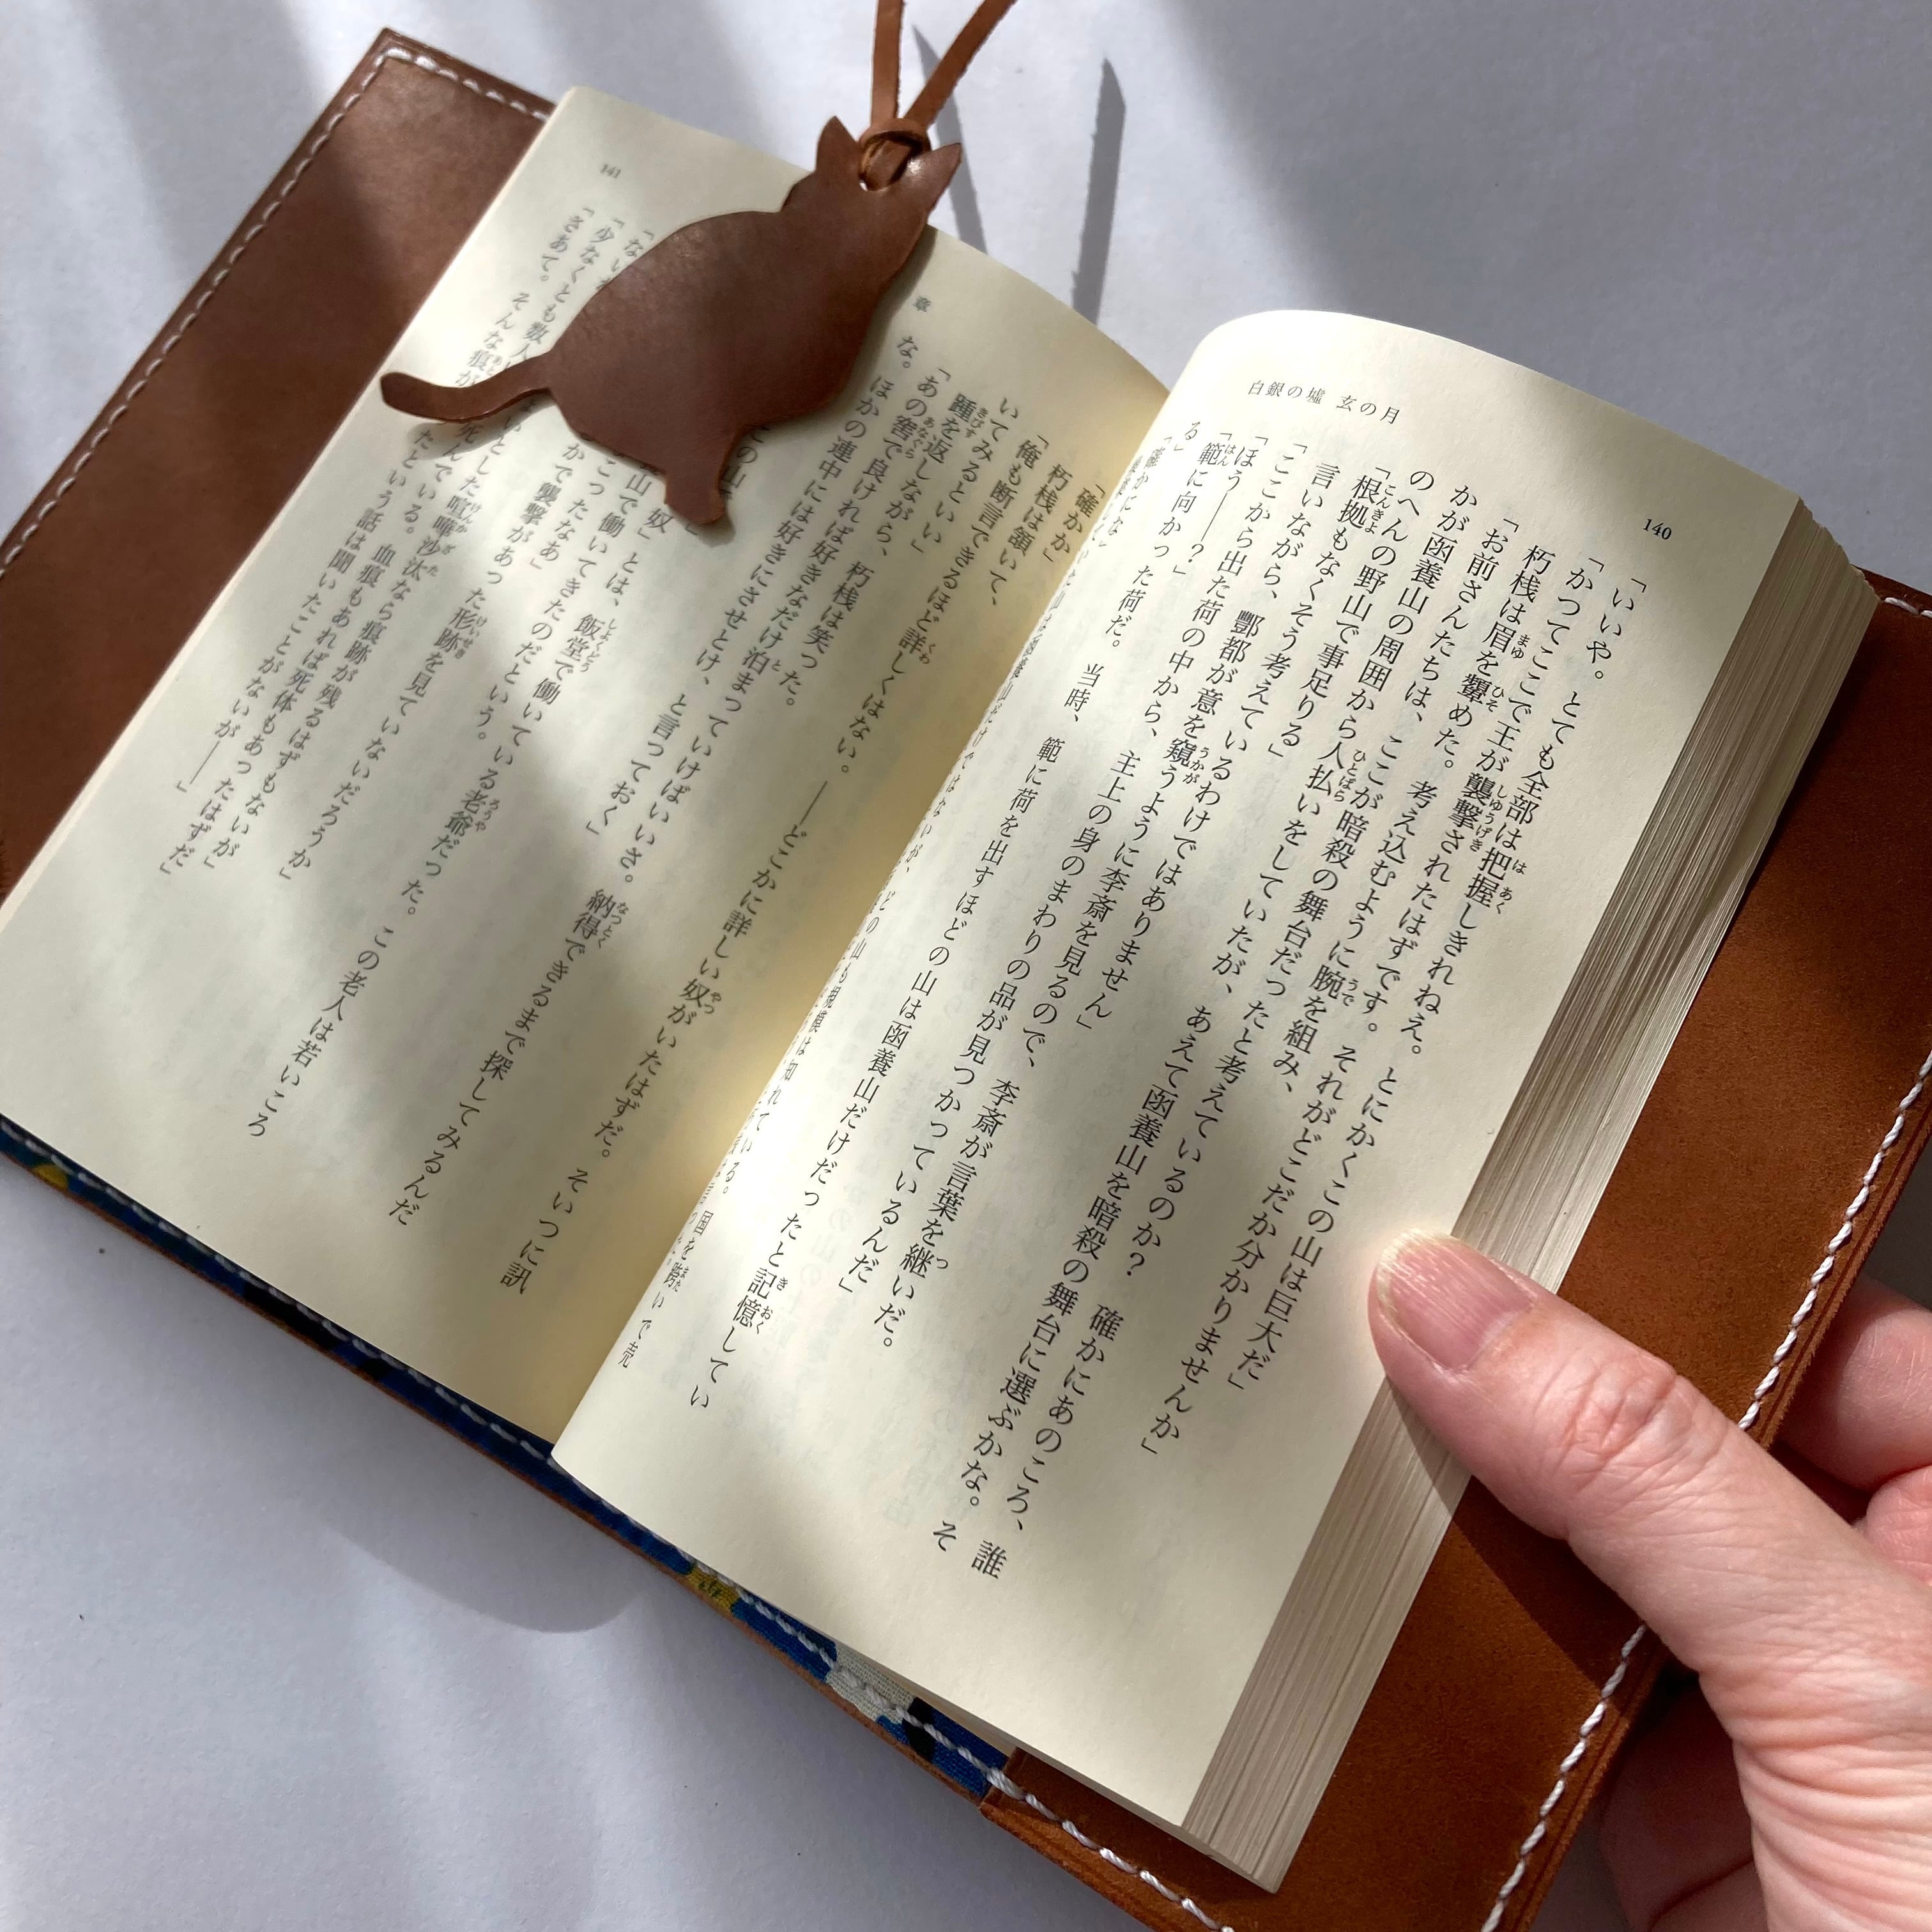 白銀の墟 玄の月
140
「いいや。とても全部は把握しきれねえ。とにかくこの山は巨大だ」
「かつてここで王が襲撃されたはずです。それがどこだか分かりませんか」
朽桟は眉を顰めた。考え込むように腕を組み、
「お前さんたちは、ここが暗殺の舞台だったと考えているのか？　確かにあのころ、誰
かが函養山の周囲から人払いをしていたが、あえて函養山を暗殺の舞台に選ぶかな。そ
のへんの野山で事足りる」
「根拠もなくそう考えているわけではありません」
言いながら、酆都が意を窺うように李斎を見るので、李斎が言葉を継いだ。
「ここから出た荷の中から、主上の身のまわりの品が見つかっているんだ」
「ほう――？」
「範に向かった荷だ。当時、範に荷を出すほどの山は函養山だけだったと記憶してい
る」
「確かにな。
141
章
「確かか」
朽桟は頷いて、
「俺も断言できるほど詳しくはない。――どこかに詳しい奴がいたはずだ。そいつに訊
いてみるといい」
踵を返しながら、朽桟は笑った。
「あの窖で良ければ好きなだけ泊まっていけばいいさ。納得できるまで探してみるんだ
な。ほかの連中には好きにさせとけ、と言っておく」
奴」とは、飯堂で働いている老爺だった。この老人は若いころ
この山で働いてきたのだという。
こったなあ」
かで襲撃があった形跡を見ていないだろうか」
「ない いとした喧嘩沙汰なら痕跡が残るはずもないが」
「少なくとも数人 死んでいる。血痕もあれば死体もあったはずだ」
「さあて。そんな痕が たという話は聞いたことがないが――」